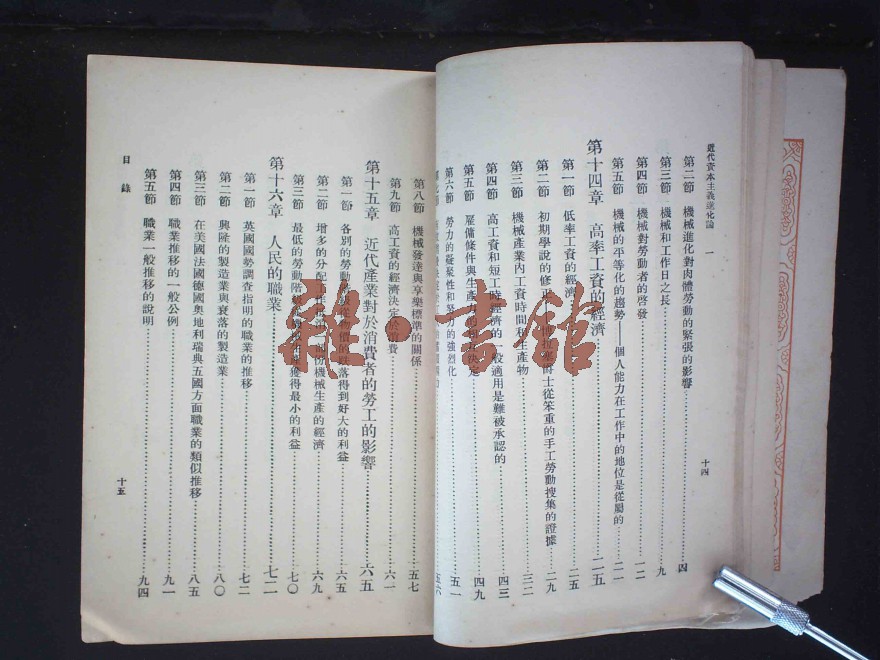 近代資本主義進化論 一
十四
第二節 機械進化對肉體勞動的緊張的影響 四
第三節 機械和工作日之長 九
第四節 機械對勞動者的啓發 一二
第五節 機械的平等化的趨勢——個人能力在工作中的地位是從屬的 二一
第十四章 高率工資的經濟 二五
第一節 低率工資的經濟 二五
第二節 初期學說的修正 士從笨重的手工勞動搜集的證據 二九
第三節 機械產業內工資時間和生產物 三二
第四節 高工資和短工時經濟的一般適用是難被承認的 四三
第五節 雇傭條件與生產力 決定 四九
第六節 勞力的凝聚性和努力的強烈化 五一
五六
第八節 機械發達與享樂標準的關係 五七
第九節 高工資的經濟決定於消費 六一
第十五章 近代產業對於消費者的勞工的影響 六五
第一節 各別的勞動 從物價的跌落得到好大的利益 六五
第二節 增多的分配 機械生產的經濟 六九
第三節 最低的勞動階級 獲得最小的利益 七〇
第十六章 人民的職業 七二
第一節 英國國勢調查指明的職業的推移 七二
第二節 興隆的製造業與衰落的製造業 八〇
第三節 在美國法國德國奧地利瑞典五國方面職業的類似推移 八五
第四節 職業推移的一般公例 九一
第五節 職業一般推移的說明 九四
目錄
十五
雜·書館